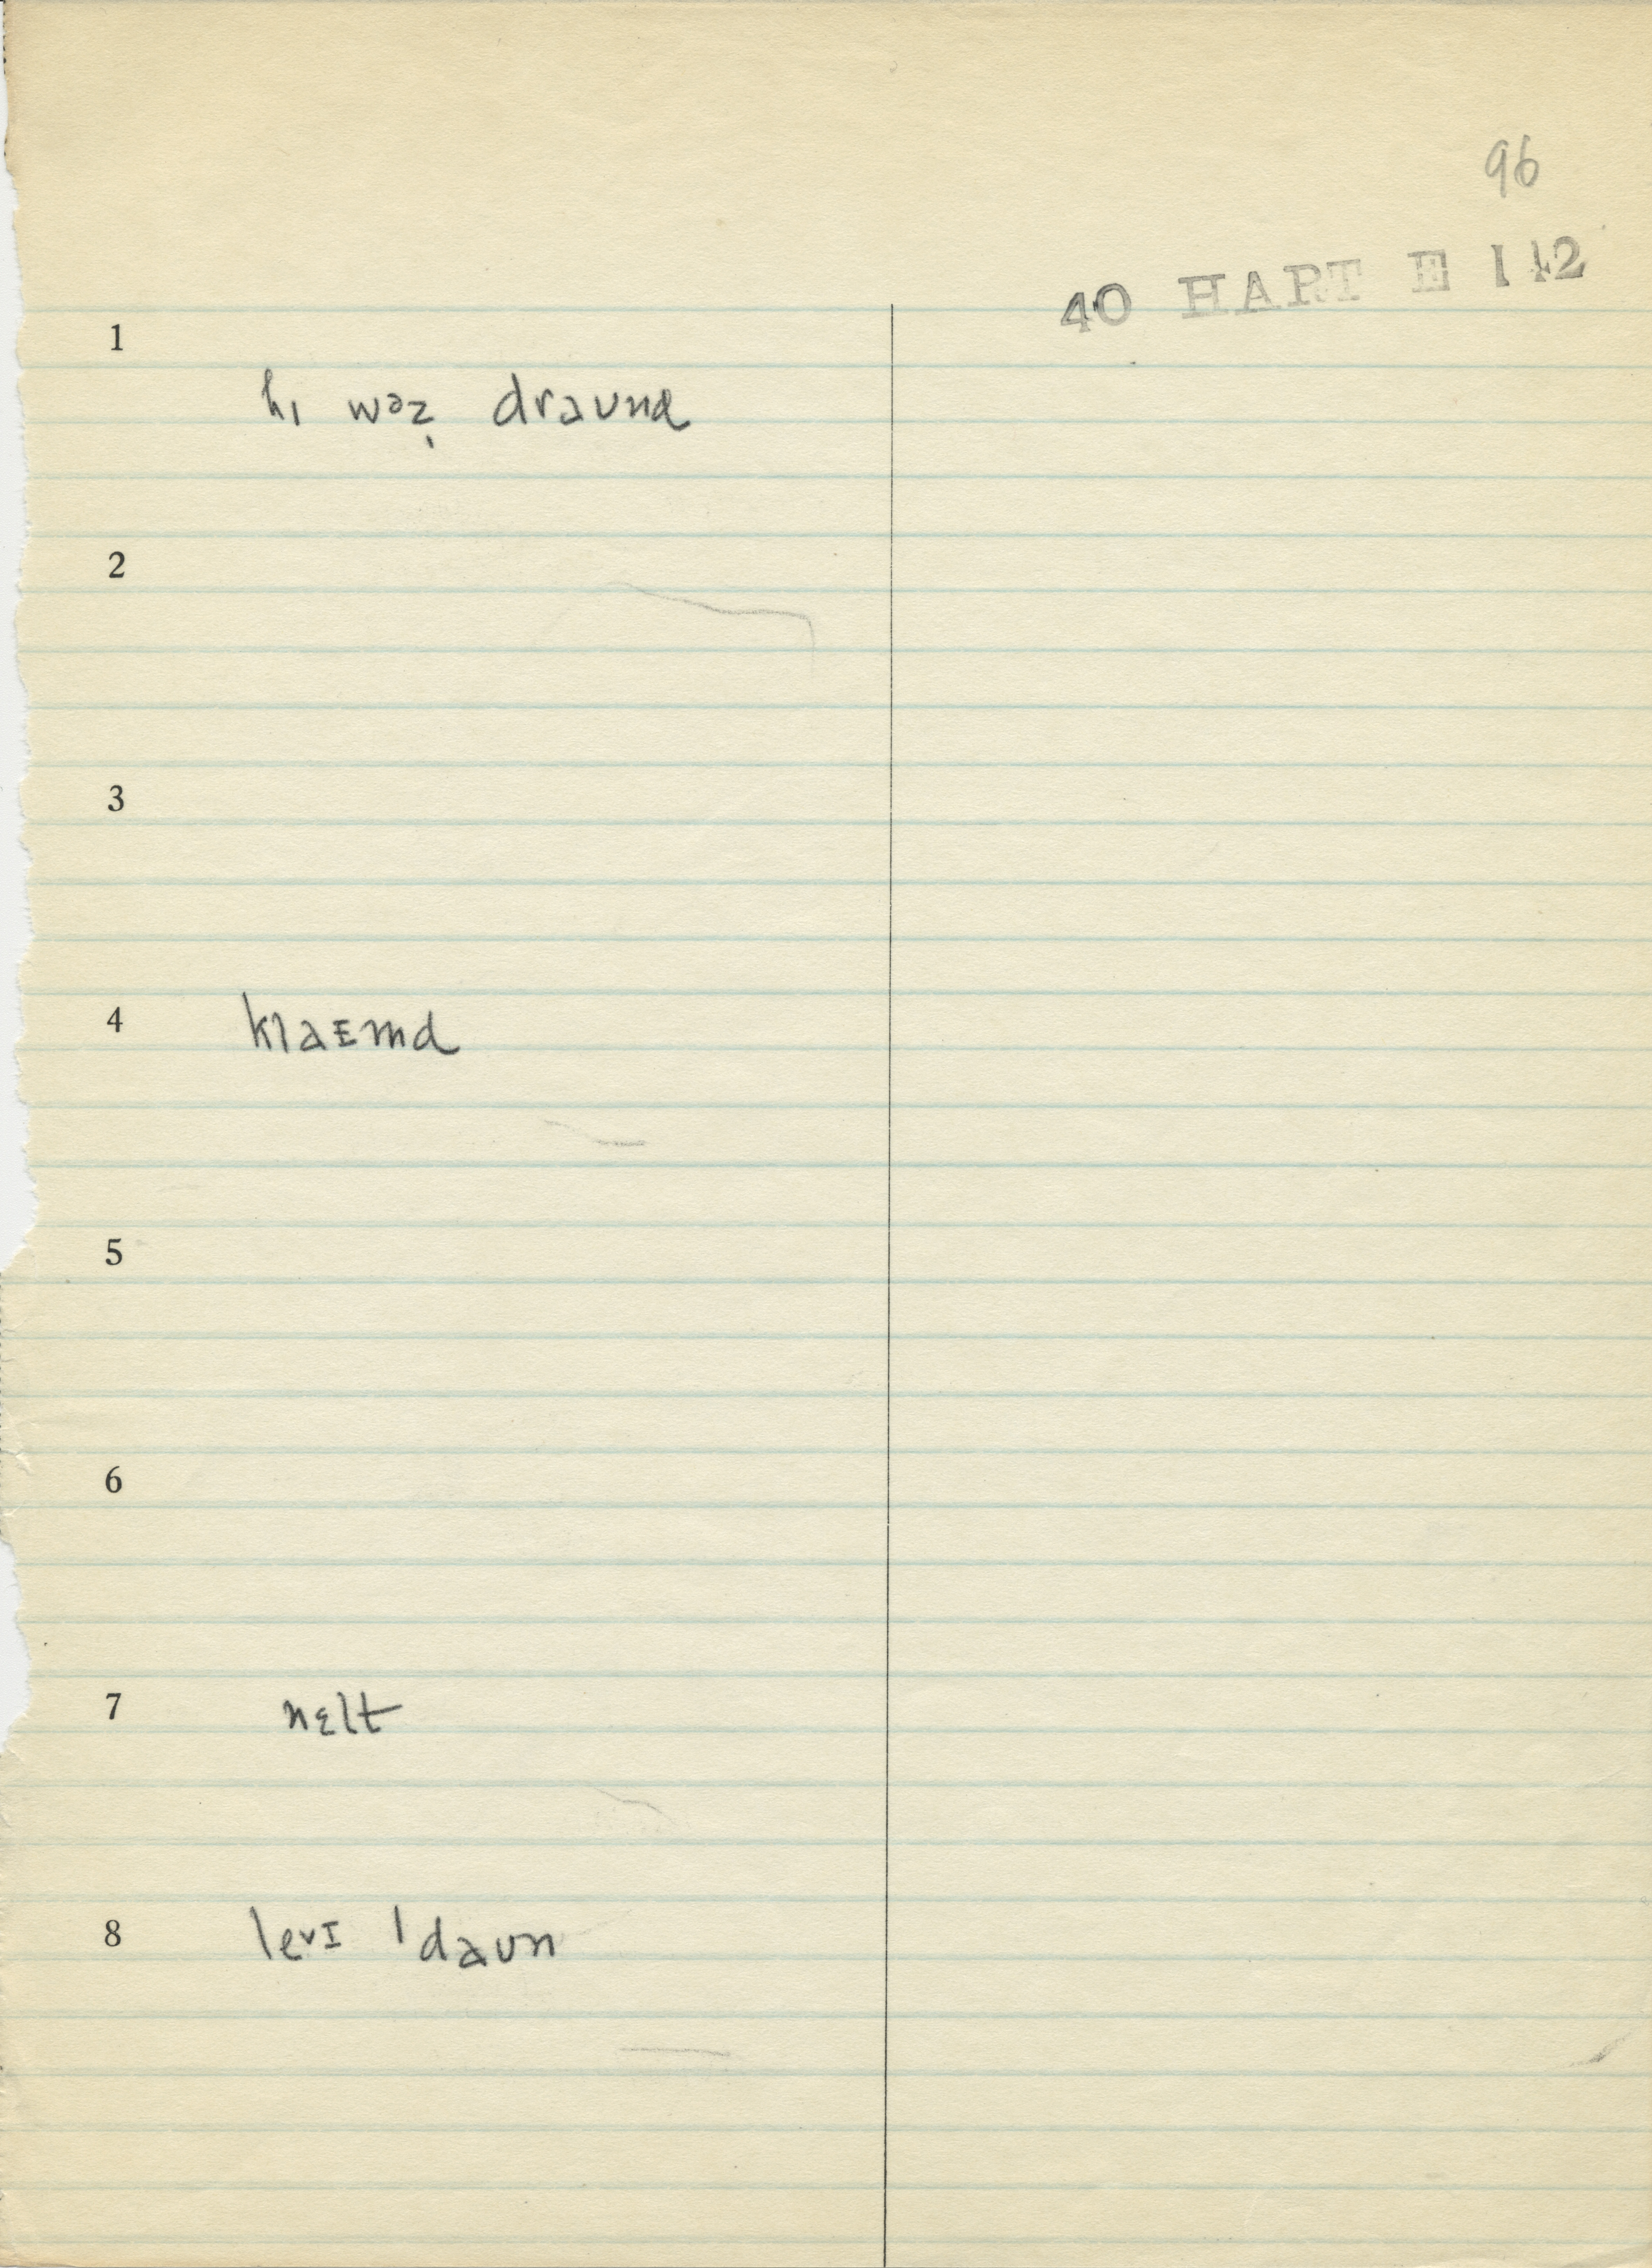 96
40 HART E 142
1
hɪ wəz̩ draʊnd
2
3
4 klaᴇmd
5
6
7 nɛlt
8 levɪ ˈdaʊn